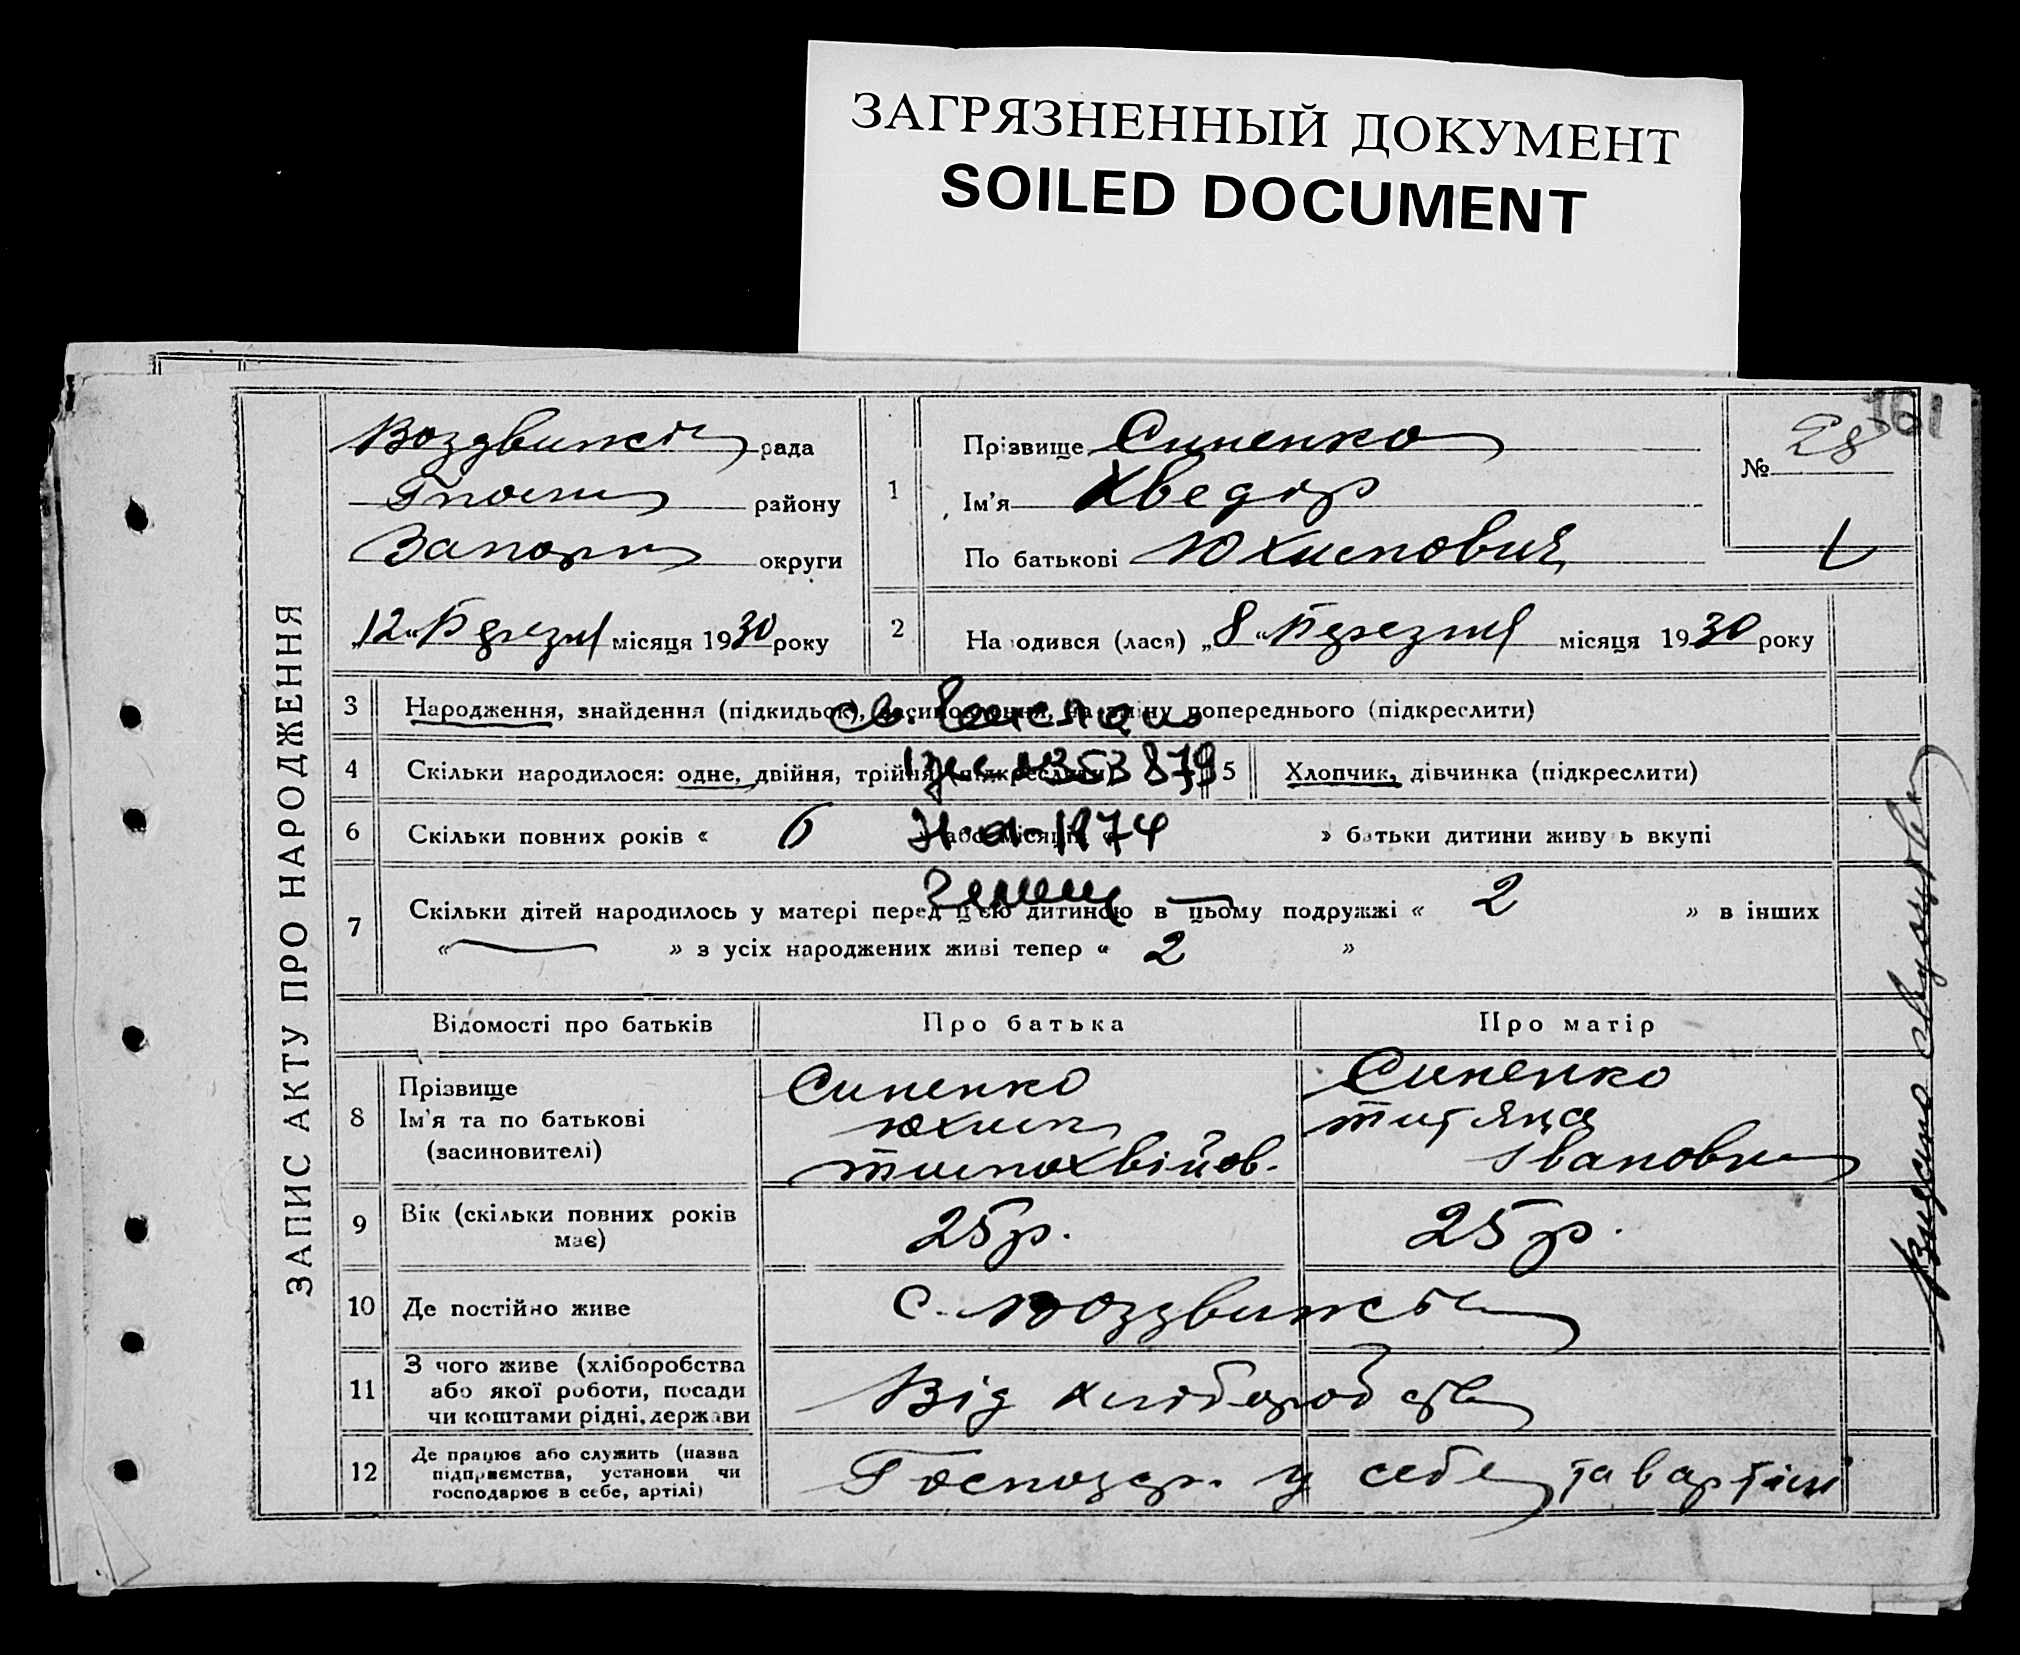 ЗАГРЯЗНЕННЫЙ ДОКУМЕНТ
SOILED DOCUMENT
161
ЗАПИС АКТУ ПРО НАРОДЖЕННЯ
рада
району
Запор округи
„12“ Березня місяця 1930 року
1 Прізвище Синенко
Ім'я Хведір
По батькові Юхимович
№ 28
2 Народився (лася) „8“ Березня місяця 1930 року
3 Народження, знайдення (підкидьок), засиновлення, на зміну попереднього (підкреслити)
4 Скільки народилося: одне, двійня, трійня (підкреслити)
5 Хлопчик, дівчинка (підкреслити)
6 Скільки повних років « 6 » або місяців « » батьки дитини живуть вкупі
353879
1974
7 Скільки дітей народилось у матері перед цією дитиною в цьому подружжі « 2 » в інших
« — » з усіх народжених живі тепер « 2 »
Відомості про батьків Про батька Про матір
8 Прізвище
Ім'я та по батькові
(засиновителі)
Синенко
Юхим
Тимохвійов.
Синенко
Титяна
Івановна
9 Вік (скільки повних років
має)
25 р. 25 р.
10 Де постійно живе
с. Воздвижівка
11 З чого живе (хліборобства
або якої роботи, посади
чи коштами рідні, держави
Від хліборобства
12 Де працює або служить (назва
підприємства, установи чи
господарює в себе, артілі)
Господар. у себе та в артілі